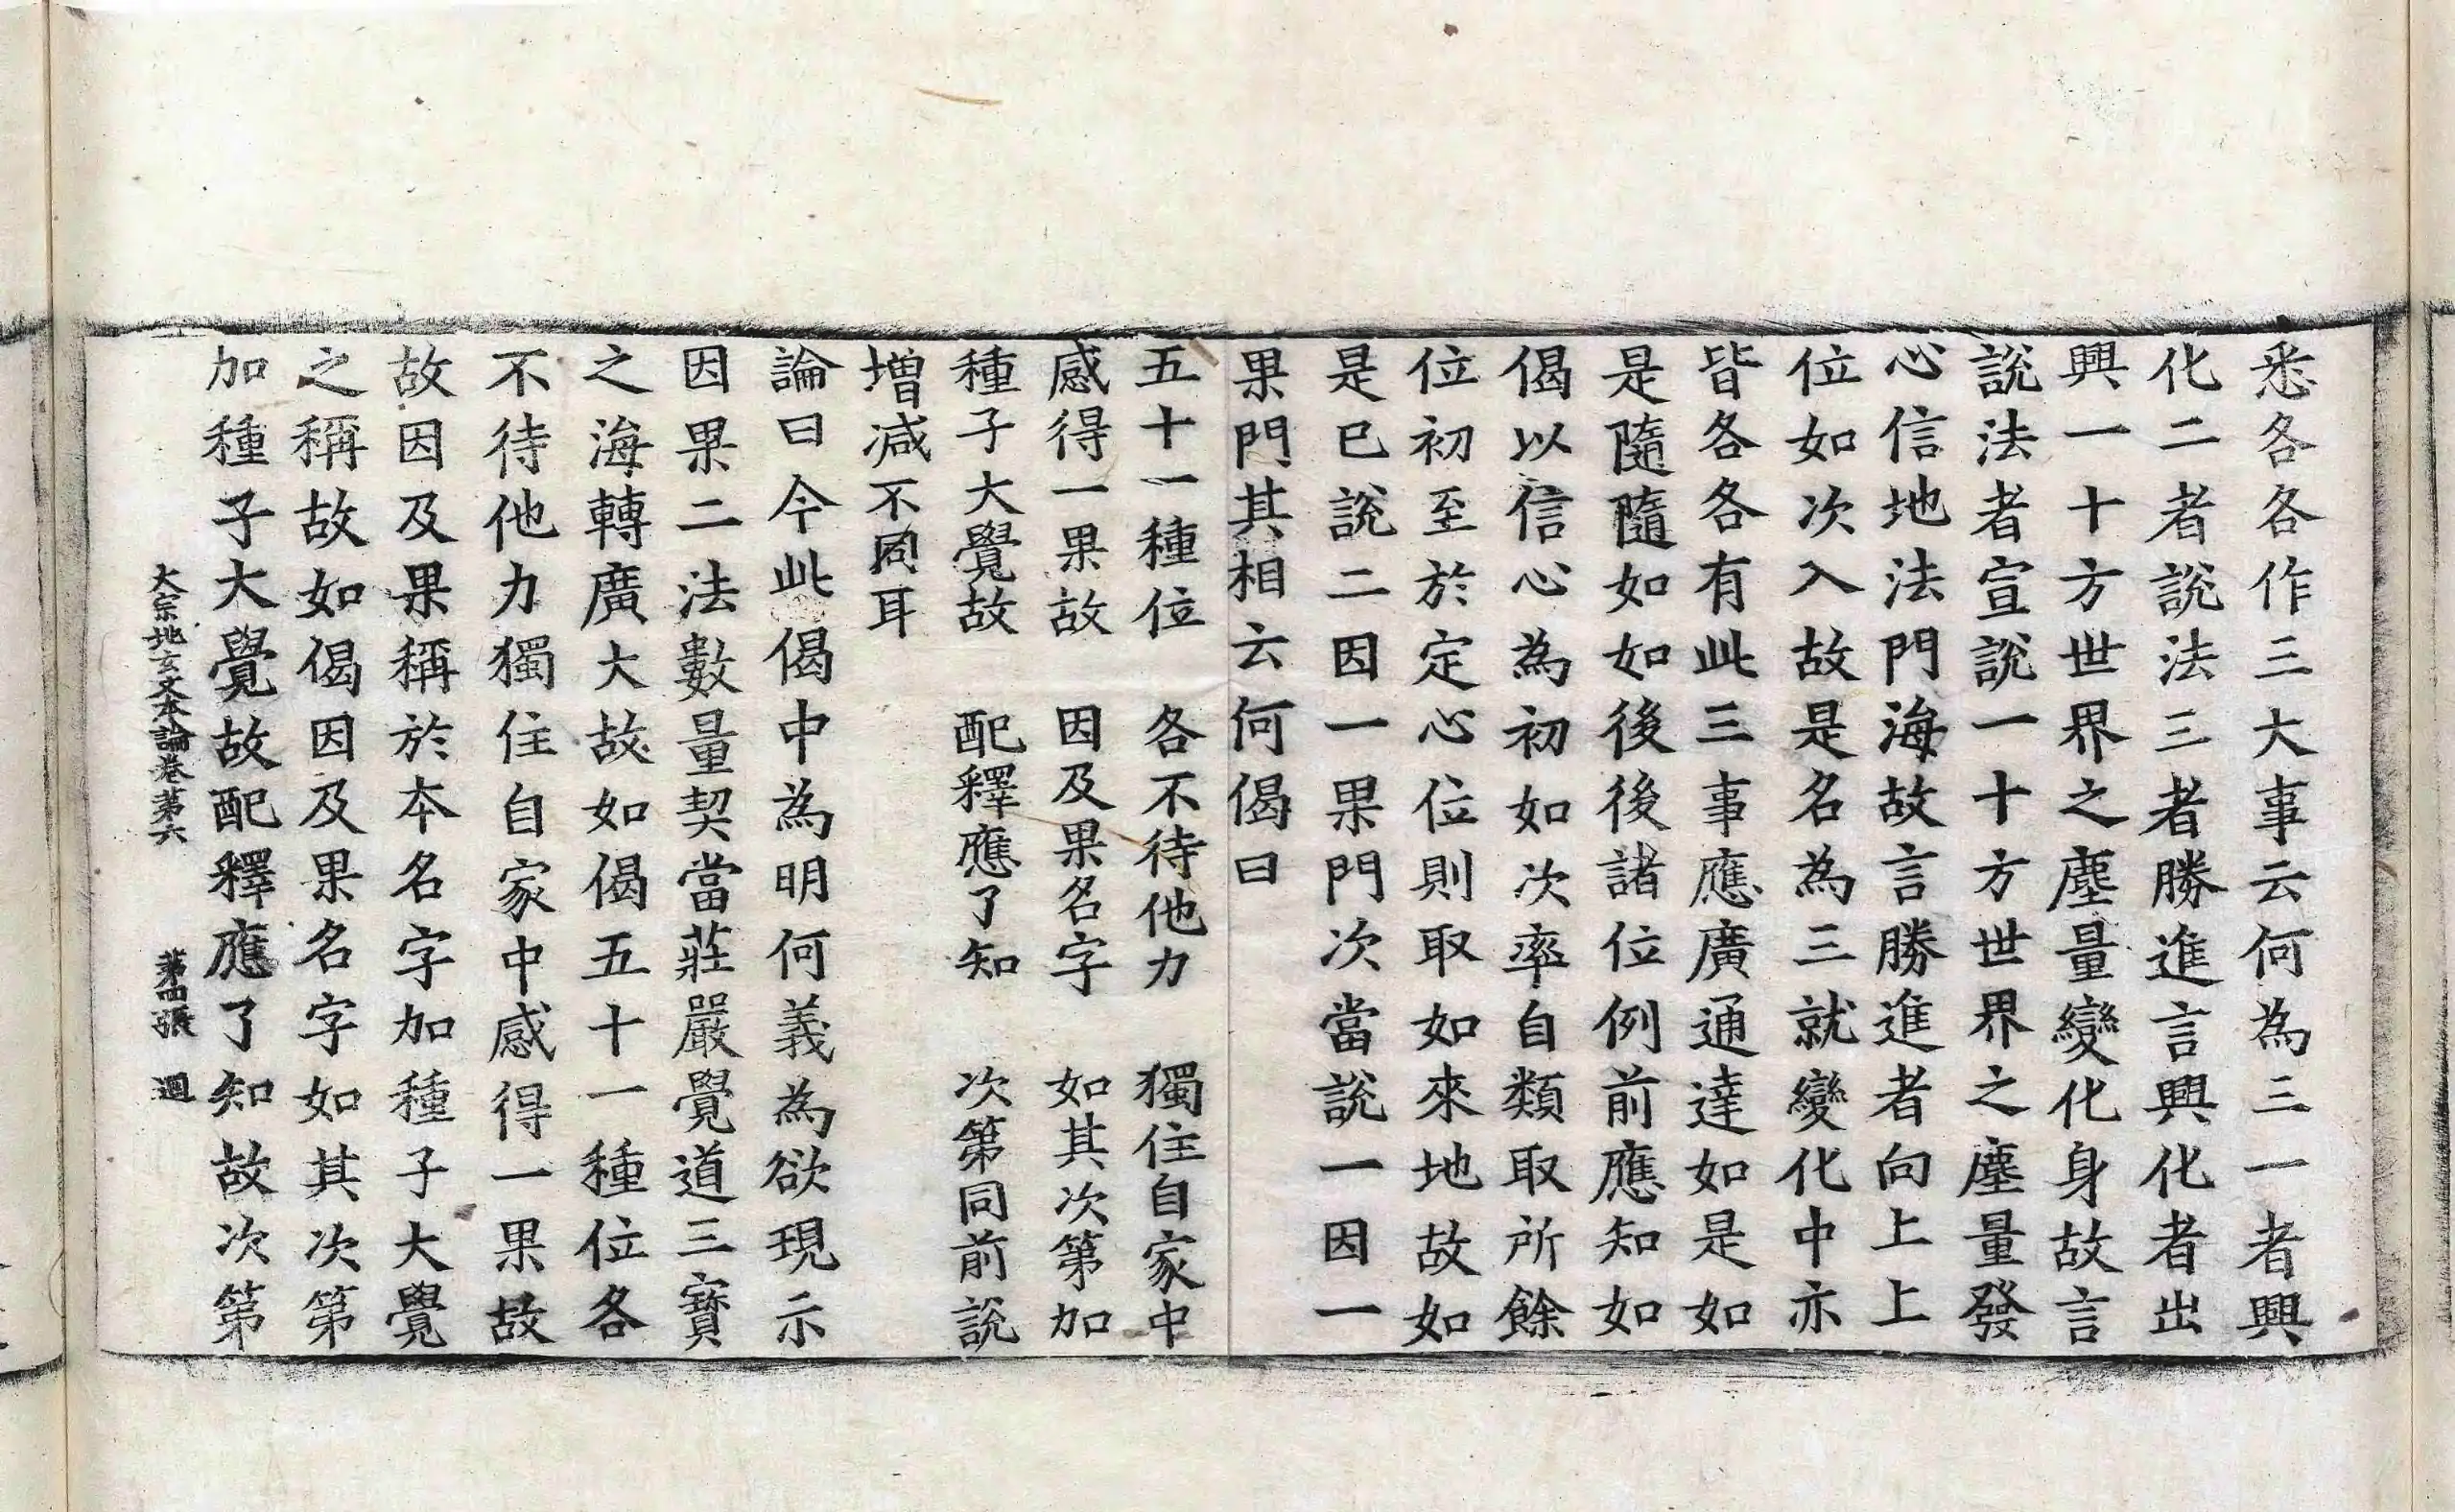 悉各各作三大事云何為三一者興
化二者說法三者勝進言興化者出
興一十方世界之塵量變化身故言
說法者宣說一十方世界之塵量發
心信地法門海故言勝進者向上上
位如次入故是名為三就變化中亦
皆各各有此三事應廣通達如是如
是隨隨如如後後諸位例前應知如
偈以信心為初如次率自類取所餘
位初至於定心位則取如來地故如
是已說二因一果門次當說一因一
果門其相云何偈曰
五十一種位　各不待他力　獨住自家中
感得一果故　因及果名字　如其次第加
種子大覺故　配釋應了知　次第同前說
增減不同耳
論曰今此偈中為明何義為欲現示
因果二法數量契當莊嚴覺道三寶
之海轉廣大故如偈五十一種位各
不待他力獨住自家中感得一果故
故因及果稱於本名字加種子大覺
之稱故如偈因及果名字如其次第
加種子大覺故配釋應了知故次第
大宗地玄文本論卷第六　第四張　迴